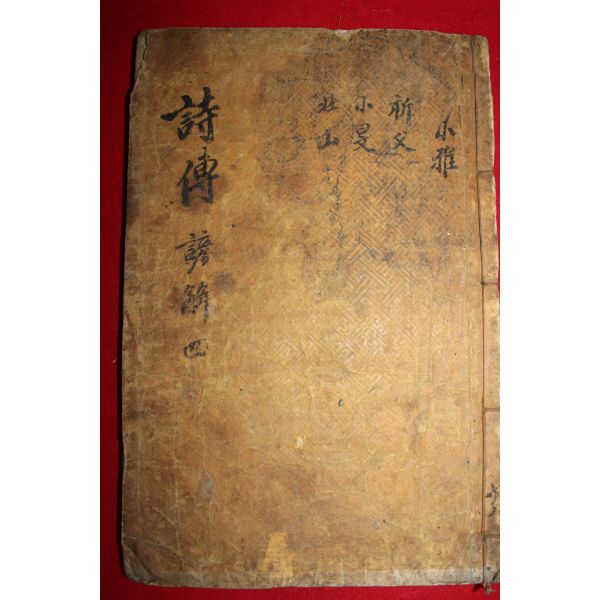 詩傳 諺解 四
小雅
祈父
小旻
北山